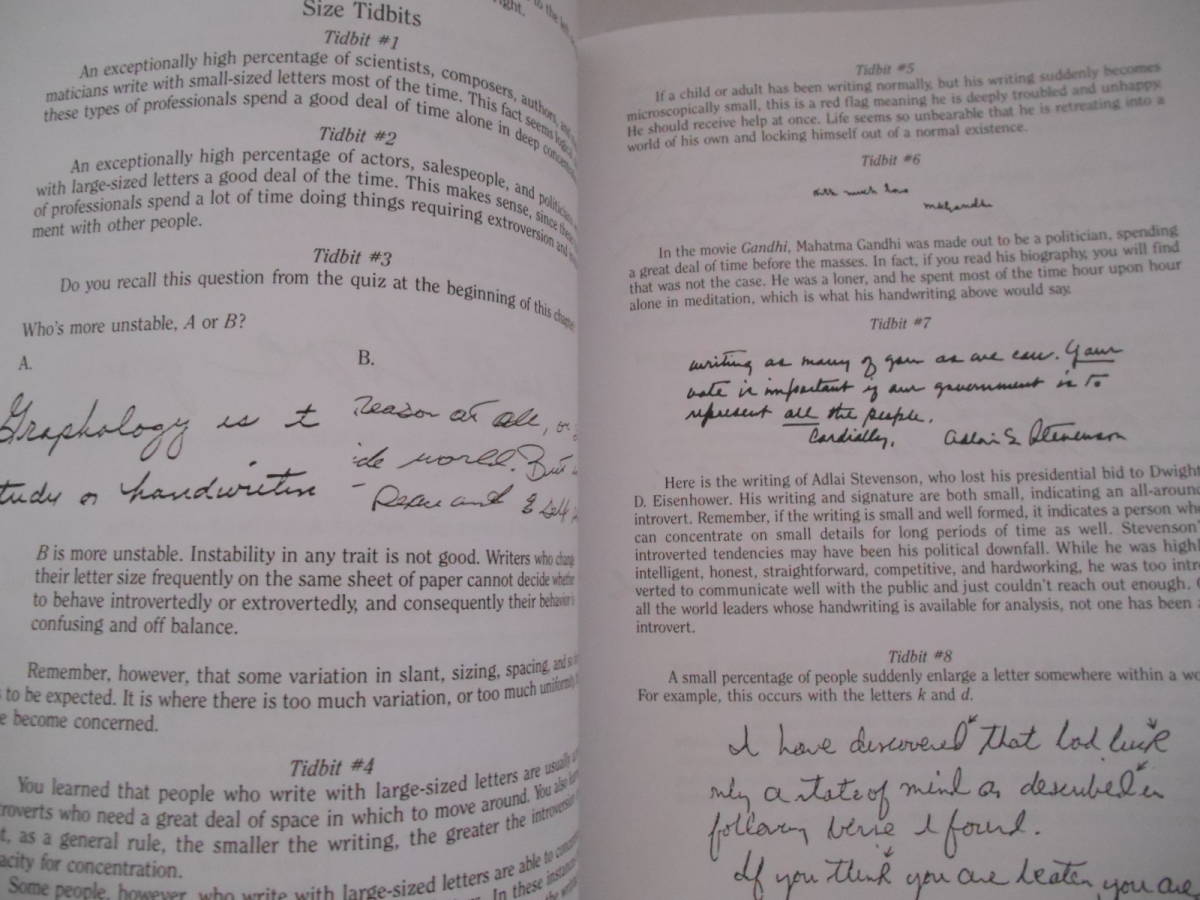 Size Tidbits
Tidbit #1
An exceptionally high percentage of scientists, composers, authors, and
maticians write with small-sized letters most of the time. This fact seems logical,
these types of professionals spend a good deal of time alone in deep
Tidbit #2
An exceptionally high percentage of actors, salespeople, and politicians
with large-sized letters a good deal of the time. This makes sense, since these
of professionals spend a lot of time doing things requiring extroversion and
ment with other people.
Tidbit #3
Do you recall this question from the quiz at the beginning of this chapter
Who's more unstable, A or B?
A.
B.
Graphology is t
tudy o handwritin
reason at all, or
ide world. But
B is more unstable. Instability in any trait is not good. Writers who change
their letter size frequently on the same sheet of paper cannot decide whether
to behave introvertedly or extrovertedly, and consequently their behavior is
confusing and off balance.
Remember, however, that some variation in slant, sizing, spacing, and so
to be expected. It is where there is too much variation, or too much uniformity
e become concerned.
Tidbit #4
You learned that people who write with large-sized letters are usually
troverts who need a great deal of space in which to move around. You also
t, as a general rule, the smaller the writing, the greater the introversion
acity for concentration.
Some people, however, who write with large-sized letters are able to
In these
Tidbit #5
If a child or adult has been writing normally, but his writing suddenly becomes
microscopically small, this is a red flag meaning he is deeply troubled and unhappy.
He should receive help at once. Life seems so unbearable that he is retreating into a
world of his own and locking himself out of a normal existence.
Tidbit #6
with much love
mkgandhi
In the movie Gandhi, Mahatma Gandhi was made out to be a politician, spending
a great deal of time before the masses. In fact, if you read his biography, you will find
that was not the case. He was a loner, and he spent most of the time hour upon hour
alone in meditation, which is what his handwriting above would say.
Tidbit #7
writing as many of you as we can. Your
vote is important if our government is to
represent all the people.
Cordially,
Adlai E Stevenson
Here is the writing of Adlai Stevenson, who lost his presidential bid to Dwight
D. Eisenhower. His writing and signature are both small, indicating an all-around
introvert. Remember, if the writing is small and well formed, it indicates a person who
can concentrate on small details for long periods of time as well. Stevenson'
introverted tendencies may have been his political downfall. While he was highl
intelligent, honest, straightforward, competitive, and hardworking, he was too intro
verted to communicate well with the public and just couldn't reach out enough.
all the world leaders whose handwriting is available for analysis, not one has been a
introvert.
Tidbit #8
A small percentage of people suddenly enlarge a letter somewhere within a wo
For example, this occurs with the letters k and d.
I have discovered that bad luck
only a state of mind as described in
following verse I found.
If you think you are beaten, you are